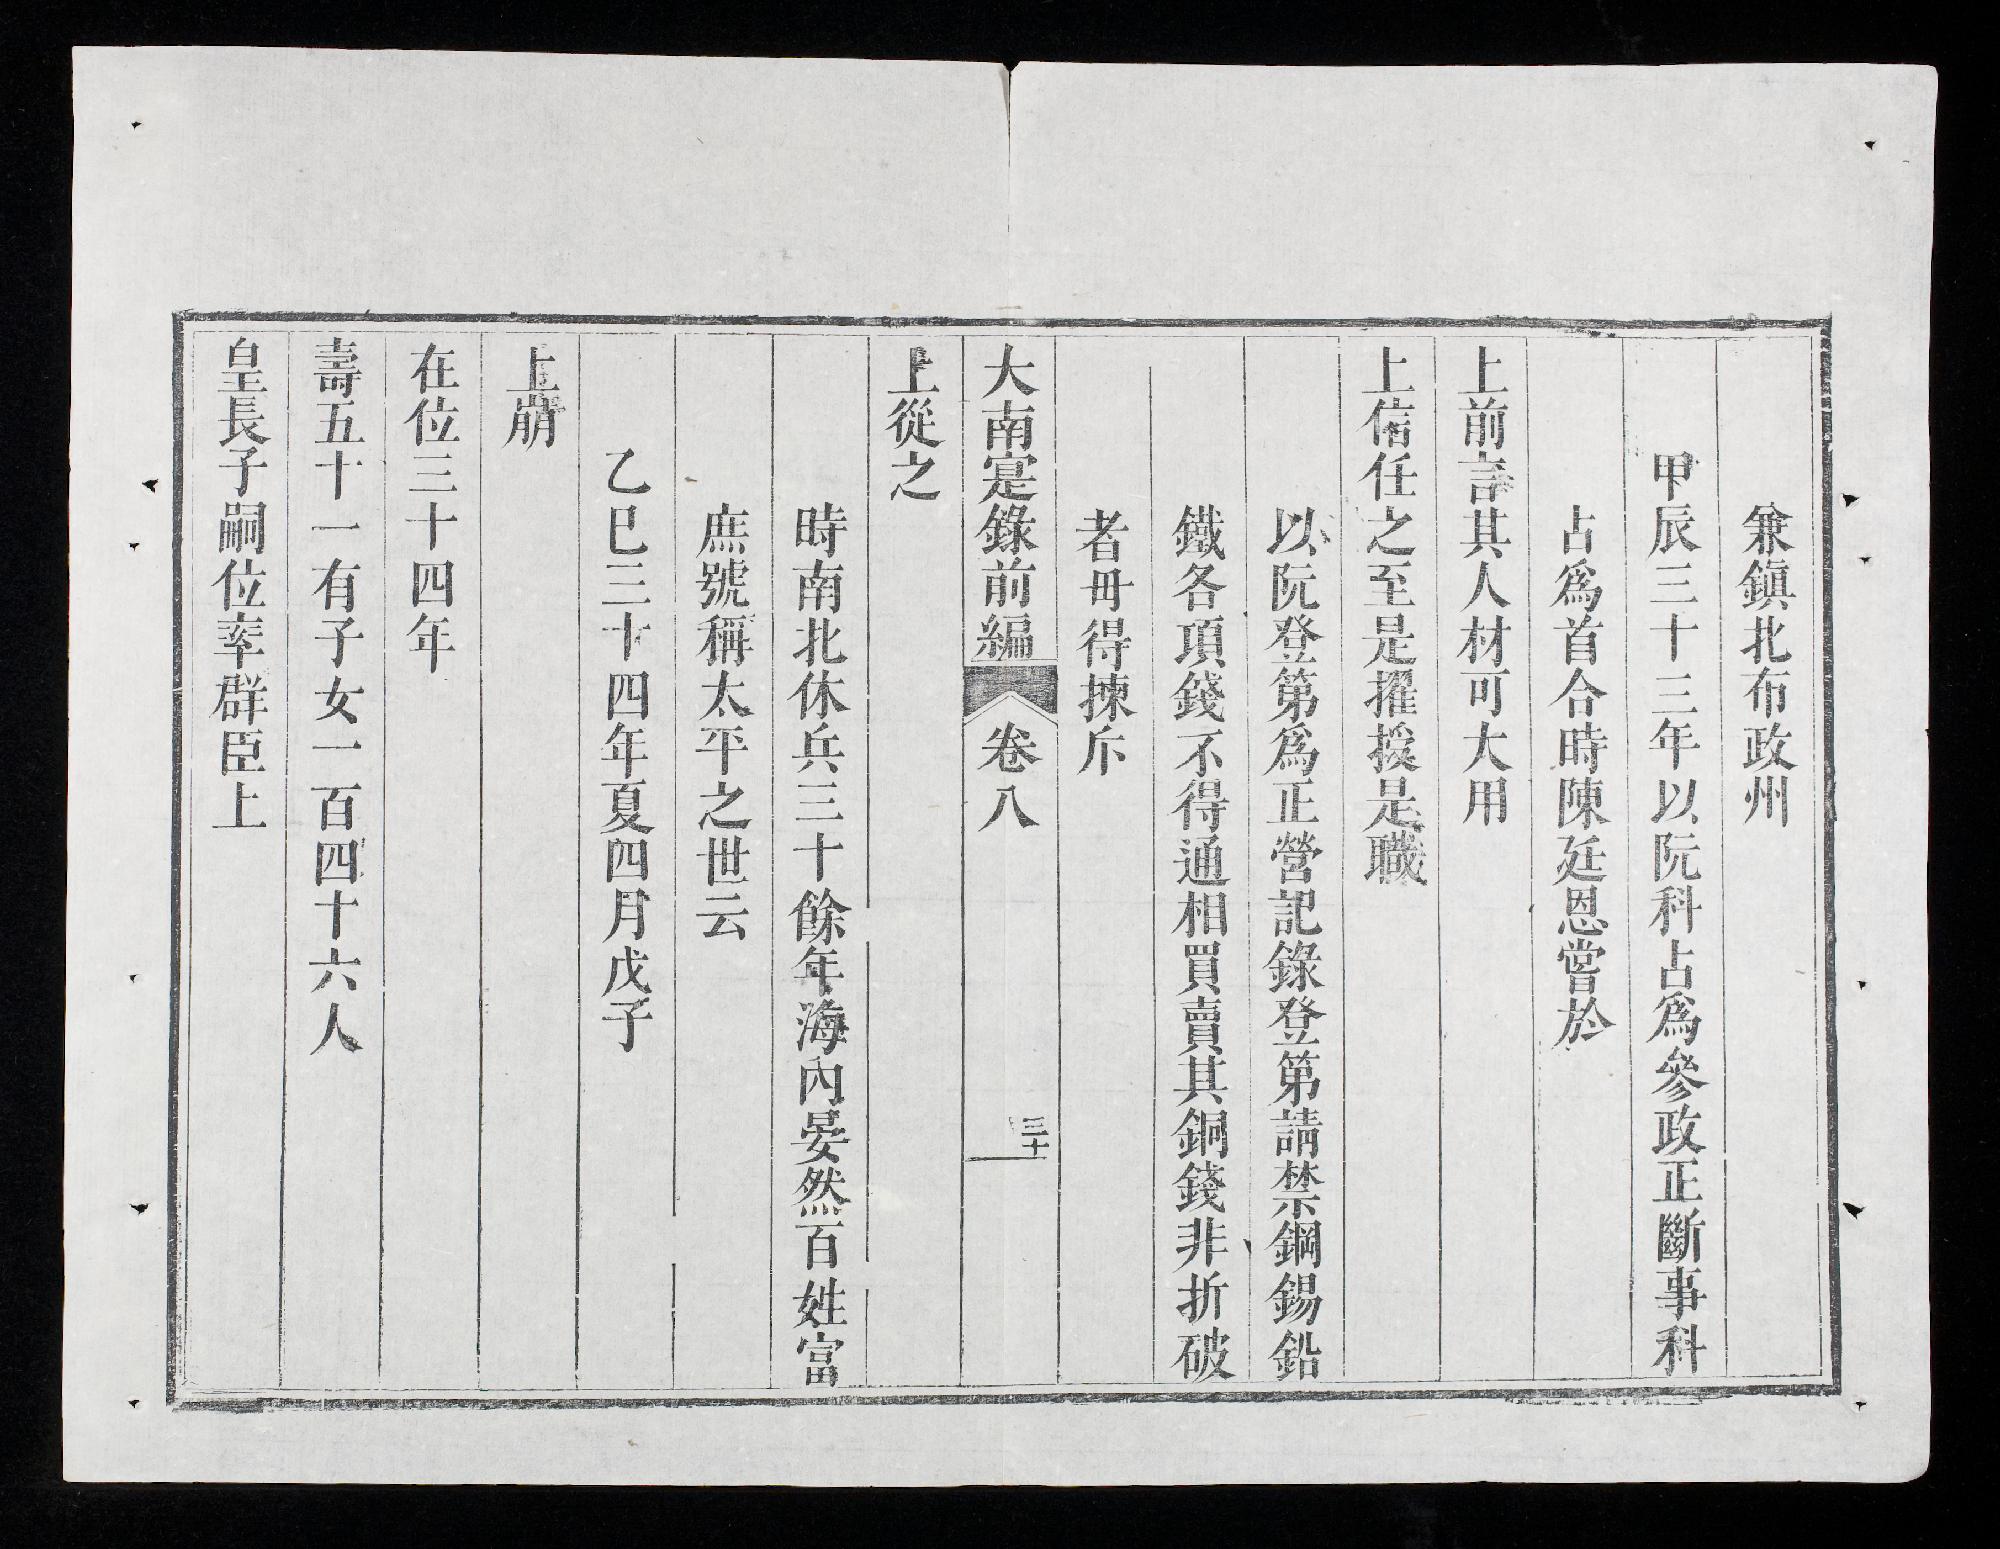 兼鎮北布政州
甲辰三十三年以阮科占爲參政正斷事科
占爲首合時陳廷恩嘗於
上前言其人材可大用
上信任之至是擢授是職
以阮登第爲正營記錄登第請禁鋼錫鉛
鐵各項錢不得通相買賣其銅錢非折破
者毋得揀斥
大南寔錄前編 卷八 三十
上從之
時南北休兵三十餘年海內晏然百姓富
庶號稱太平之世云
乙巳三十四年夏四月戊子
上崩
在位三十四年
壽五十一有子女一百四十六人
皇長子嗣位率群臣上